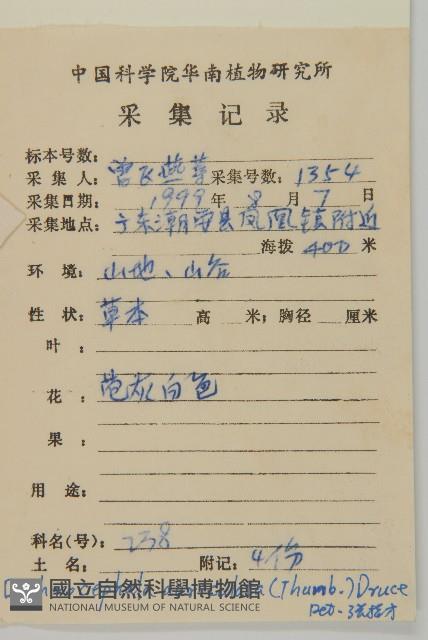 中国科学院华南植物研究所
采集记录
标本号数：
采集人：曾飞燕等 采集号数：1354
采集日期：1999年8月7日
采集地点：广东潮安县凤凰镇附近
海拨 400 米
环境：山地、山谷
性状：草本 高 米；胸径 厘米
叶：
花：苞灰白色
果：
用途：
科名(号)：238
土名： 附记：4份
(Thumb.) Druce
國立自然科學博物館
NATIONAL MUSEUM OF NATURAL SCIENCE
Det.